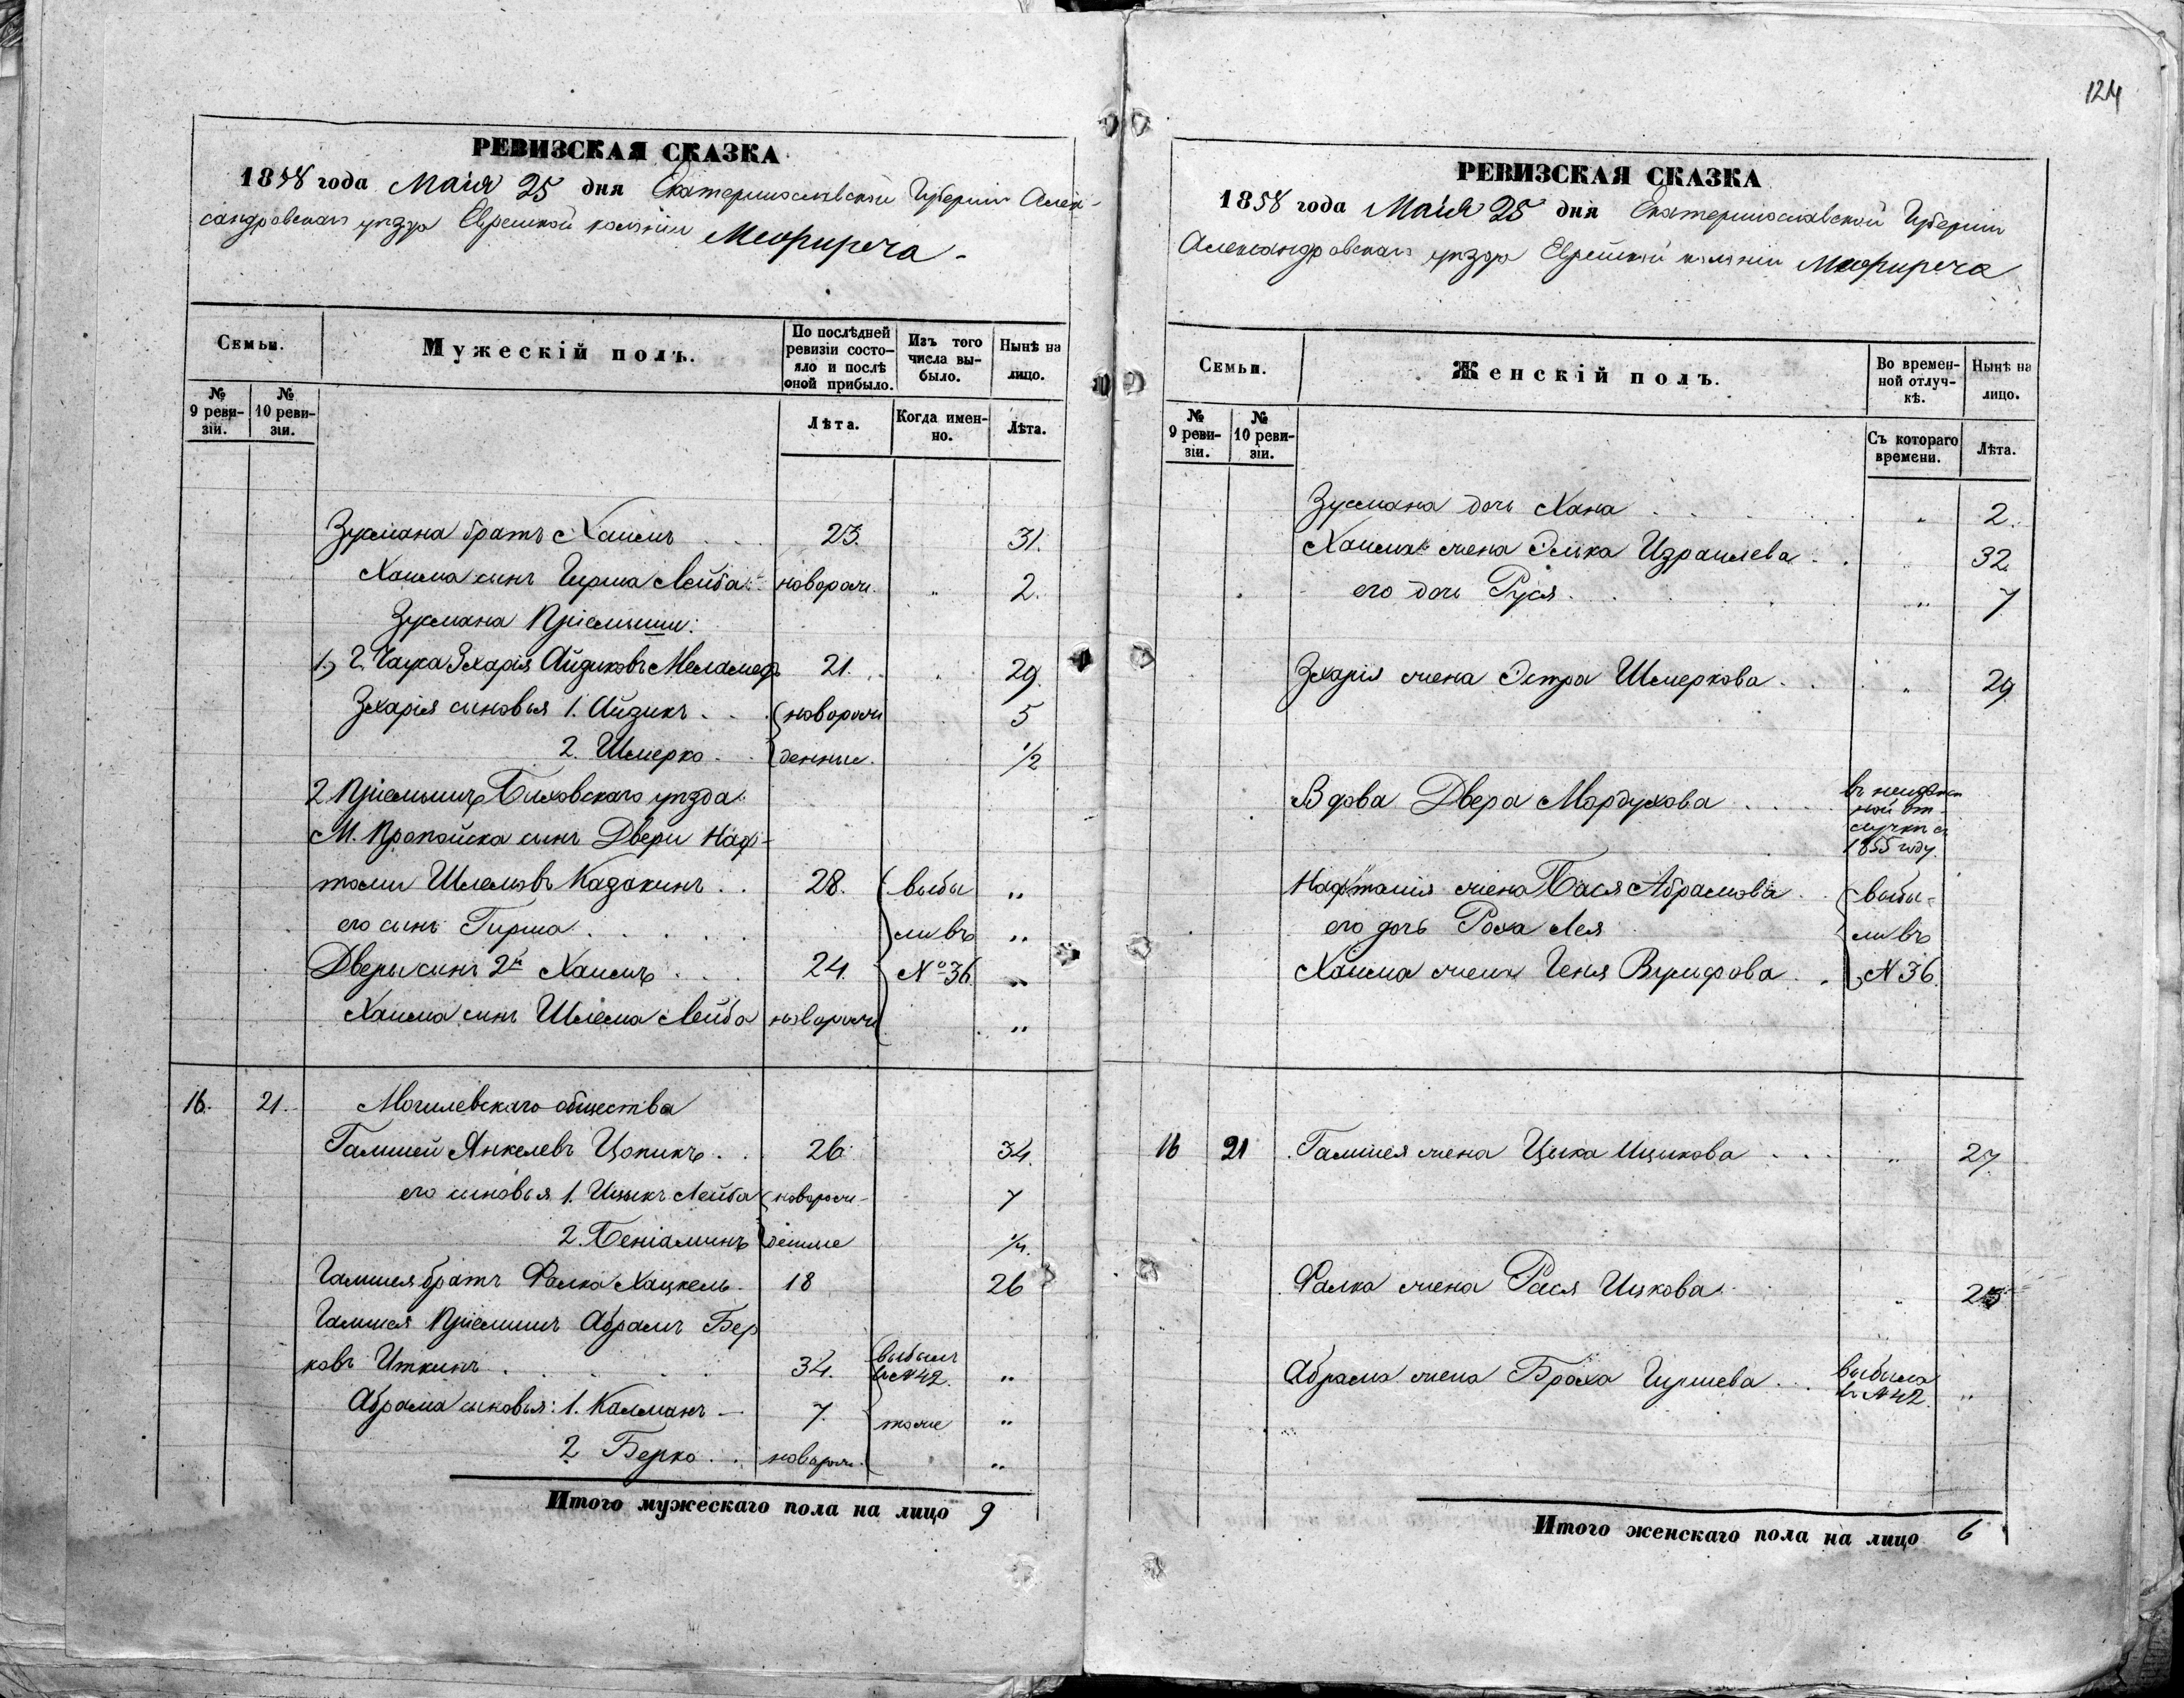 124
РЕВИЗСКАЯ СКАЗКА
1858 года Маія 25 дня Екатеринославской Губерніи Алек-
сандровскаго уѣзда Еврейской колоніи Межиречa
Семьи.
Мужескій полъ.
По послѣдней ревизіи состо-яло и послѣ оной прибыло.
Изъ того числа вы-было.
Нынѣ на лицо.
№ 9 реви-зіи.
№ 10 реви-зіи.
Лѣта.
Когда имен-но.
Лѣта.
Зусмана братъ Хаимъ 23. 31.
Хаима сынъ Гирша Лейба новорож. „ 2.
Зусмана Пріемыши:
1) Г. Чауса Зхарія Айзиковъ Меламедъ 21. „ 29.
Зхарія сыновья 1. Айзикъ новорож 5
2. Шмерко денные. 1/2
2. Пріемышъ Быховскаго уѣзда
М. Пропойска сынъ Двери Наф-
толи Шлемовъ Казакинъ 28. выбы „
его сынъ Гирша ли въ „
Двери сынъ 2й Хаимъ 24. № 36. „
Хаима сынъ Шлема Лейба новорож „
16. 21. Могилевскаго общества
Гамшей Янкелевъ Цопикъ 26 34.
его сыновья 1. Ицыкъ Лейба новорож- 7
2. Беніаминъ денные 1/4.
Гамшея братъ Фалко Хацкель 18 26
Гамшея Пріемышъ Абрамъ Бер
ковъ Иткинъ 34. выбылъ в № 42. „
Абрама сыновья: 1. Калманъ — 7. тоже „
2 Берко новорож. „
Итого мужескаго пола на лицо 9
РЕВИЗСКАЯ СКАЗКА
1858 года Маія 25 дня Екатеринославской Губерніи
Александровскаго уѣзда Еврейской колоніи Межиреча
Семьи.
Женскій полъ.
Во времен-ной отлуч-кѣ.
Нынѣ на лицо.
№ 9 реви-зіи.
№ 10 реви-зіи.
Съ котораго времени.
Лѣта.
Зусмана дочь Хана „ 2.
Хаима жена Элька Израилева „ 32.
его дочь Руся „ 7
Зхарія жена Эстра Шмеркова „ 29
Вдова Двера Мордухова
1855 году.
Нафталія жена Бася Абрамова выбы-
его дочь Роха Лея ли въ
Хаима жена Геня Вульфова № 36.
16 21 Гамшея жена Цыка Ицикова „ 27.
Фалка жена Рася Ицкова „ 25
Абрама жена Броха Гиршева выбыла в № 42. „
Итого женскаго пола на лицо 6